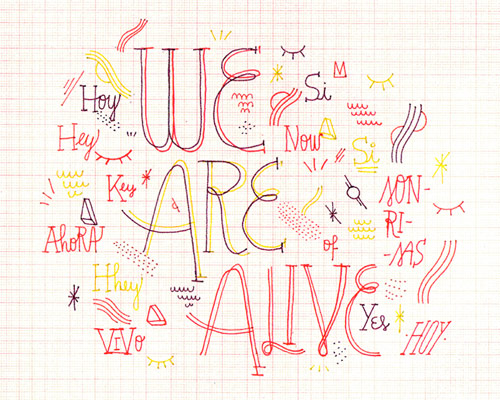 WE
Si
Hoy
Hey
Now
Si
ARE
Key
SON-
RI-
SAS
AhoRA!
of
Hhey
ALIVE
Yes
ViVo
HOY